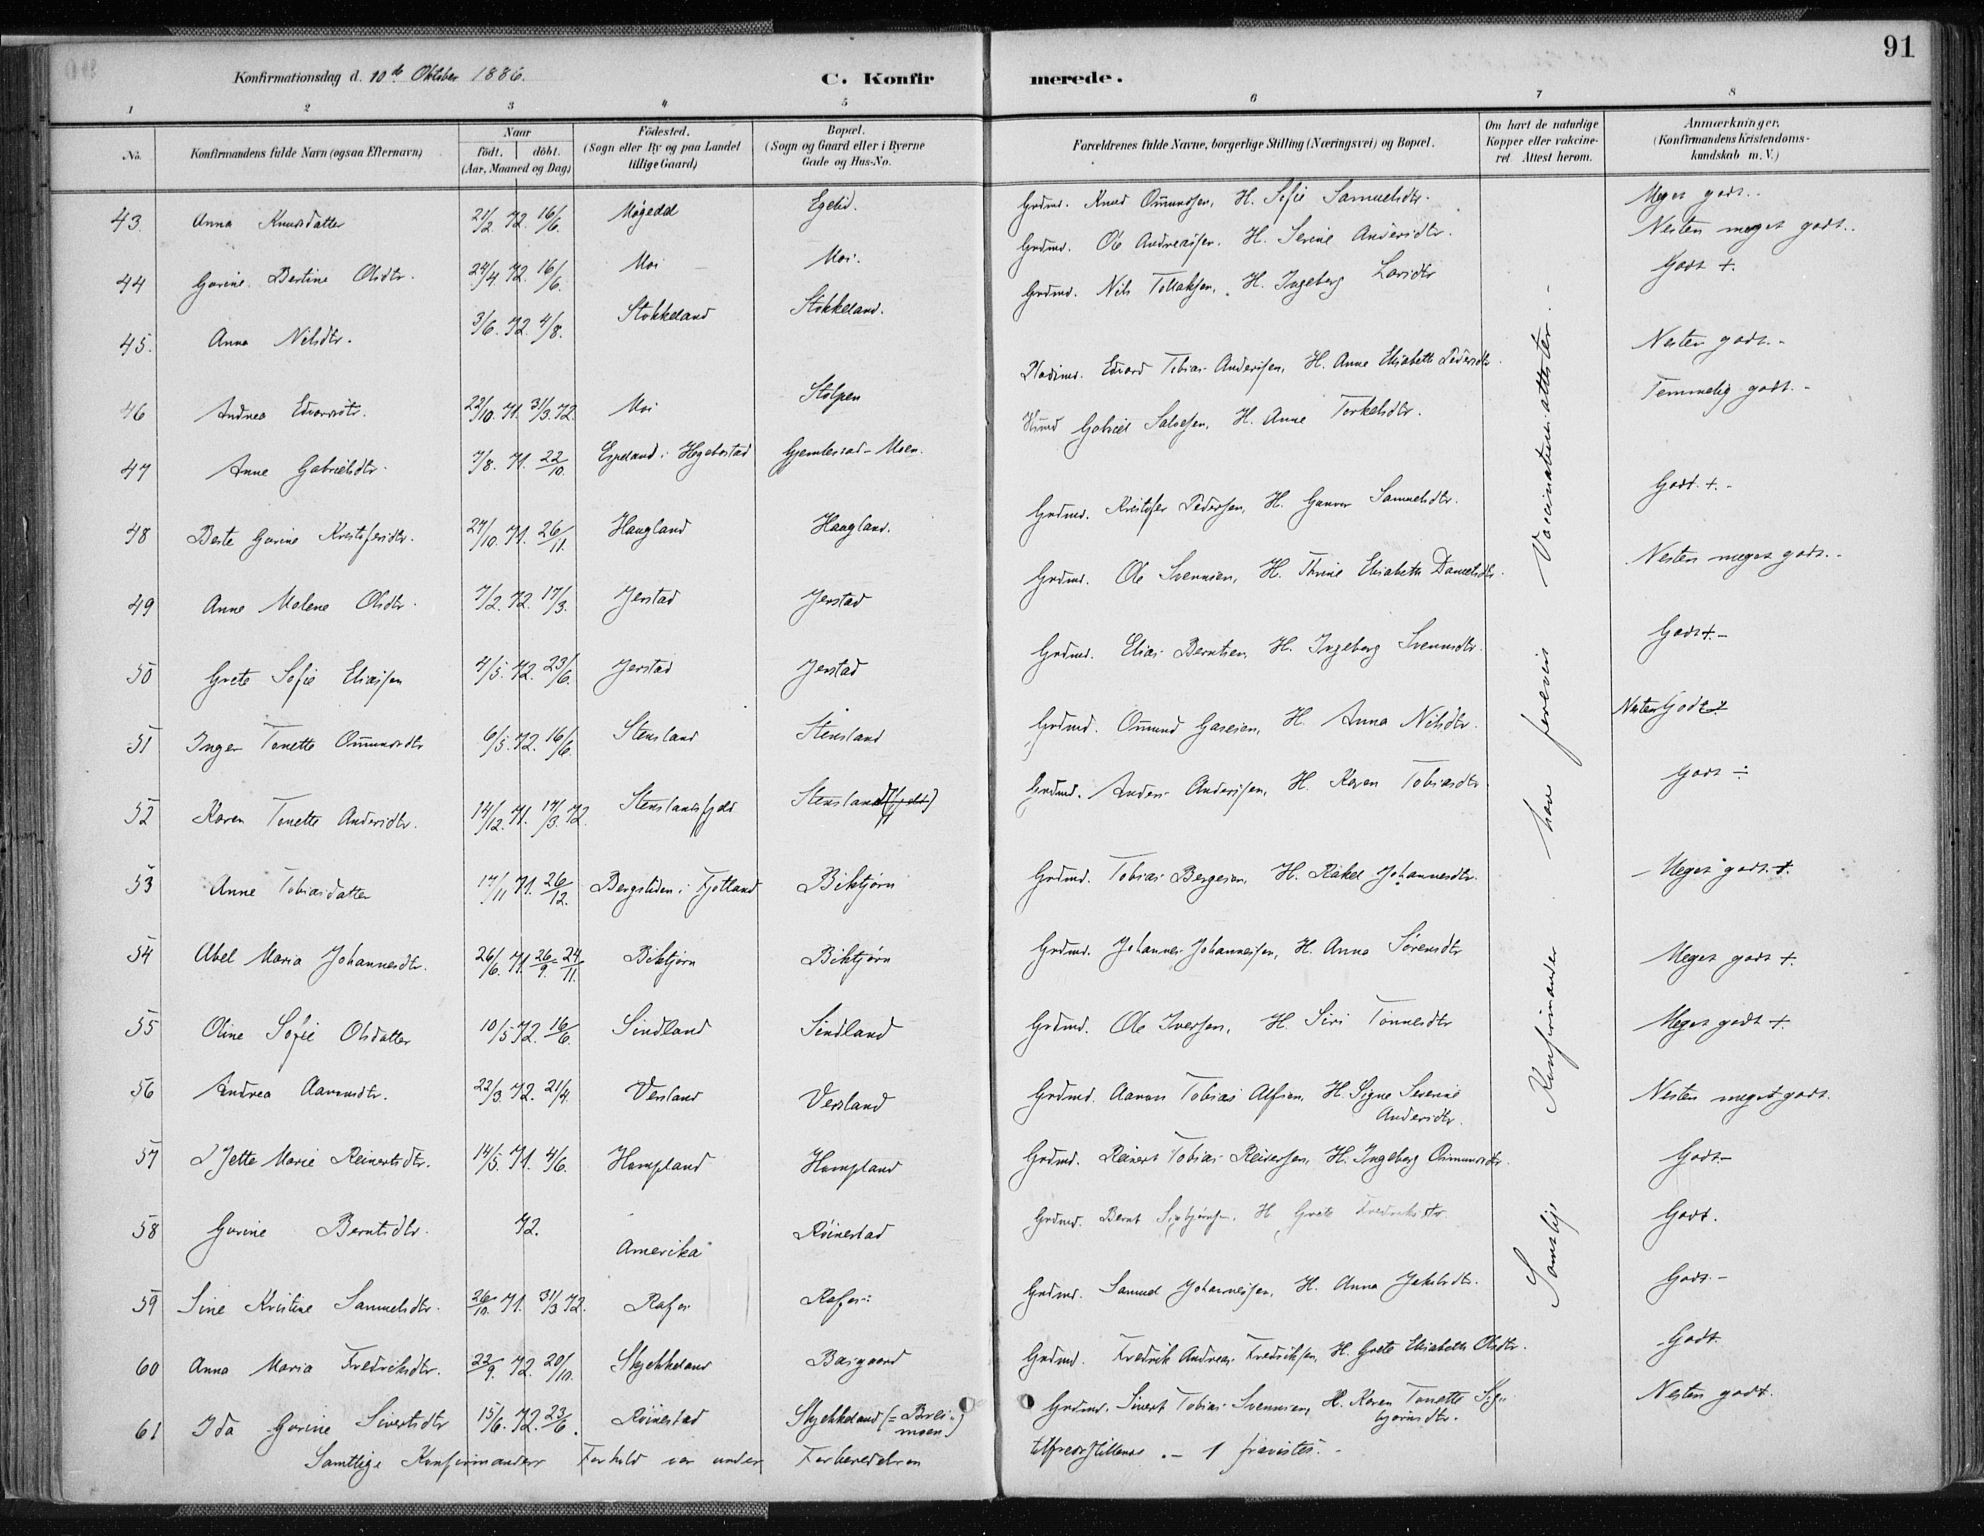 91
Konfirmationsdag d. 10de Oktober 1886.
C. Konfirmerede.
1 2 3 4 5 6 7 8
No.
Konfirmandens fulde Navn (ogsaa Efternavn)
Naar
født. døbt.
(Aar, Maaned og Dag)
Fødested.
(Sogn eller By og paa Landet
tillige Gaard)
Bopæl.
(Sogn og Gaard eller i Byerne
Gade og Hus-No.
Forældrenes fulde Navne, borgerlige Stilling (Næringsvei) og Bopæl.
Om havt de naturlige
Kopper eller vakcine-
ret. Attest herom.
Anmærkninger.
(Konfirmandens Kristendoms-
kundskab m. V.)
43. Anna Knudsdatter 21/2 72. 16/6. Møgedal Egelid. Grdmd. Knud Omundsen, H. Sofie Samuelsdtr. Meget godt.
44 Gurine Bertine Olsdtr. 24/4 72. 16/6. Moi Moi. Grdmd. Ole Andreassen. H. Serine Andersdtr. Nesten meget godt.
45. Anna Nilsdtr. 3/6. 72. 4/8. Stokkeland Stokkeland. Grdmd. Nils Tollaksen, H. Ingeborg Larsdtr Godt +.
46 Andrea Edvardsdtr. 22/10. 71. 31/3. 72. Moi Stolpen Pladsmd. Edvard Tobias Andersen, H. Anne Elisabeth Pedersdtr. Nesten godt.
47 Anne Gabrielsdtr. 7/8. 71. 22/10. Egeland i Hegebostad Gjemlestad-Moen. Gabriel Salvesen, H. Anne Torkelsdtr. Temmelig godt.
48 Berte Gurine Kristofersdtr. 27/10. 71. 26/11. Haugland Haugland. Grdmd. Kristofer Pedersen, H. Gunvor Samuelsdtr. Godt. +.
49 Anne Malene Olsdtr. 7/2. 72. 17/3. Jerstad Jerstad Grdmd. Ole Svennsen, H. Thrine Elisabeth Danielsdtr. Nesten meget godt.
50 Grete Sofie Eliassen 4/5. 72. 23/6. Jerstad Jerstad Grdmd. Elias Berntsen, H. Ingeborg Svennsdtr. Godt +.
51 Inger Tonette Omundsdtr 6/5. 72. 16/6. Stensland Stensland Grdmd. Omund Gasesen, H. Anna Nilsdtr. Nesten Godt.
52 Karen Tonette Andersdtr. 14/12. 71. 17/3. 72. Stenslandsfjeld Stensland (fjeld) Grdmd. Anders Andersen, H. Karen Tobiasdtr. Godt ÷
53 Anne Tobiasdatter 17/11 71. 26/12. Bergsliden i Fjotland Birktjørn Grdmd. Tobias Bergesen, H. Rakel Johannesdtr. Meget godt. +.
54 Abel Maria Johannesdtr. 26/6. 71. 26/9. 24/11. Birktjørn Birktjørn Grdmd. Johannes Johannessen, H. Anna Sørensdtr Meget godt +.
55 Oline Sofie Olsdatter 10/5 72. 16/6. Sindland Sindland Grdmd. Ole Iversen, H. Siri Tønnesdtr Meget godt +.
56 Andrea Aaronsdtr. 22/3. 72. 21/4. Versland Versland Grdmd. Aaron Tobias Alfsen, H. Signe Severine
Andersdtr. Nesten meget godt.
57 Jette Marie Reinertsdtr. 14/5. 71. 4/6. Hompland Hompland Grdmd. Reinert Tobias Reinertsen, H. Ingeborg Omundsdtr. Godt.
58 Gurine Berntsdtr. 72. Amerika Røinestad Grdmd. Bernt Sigbjørnsen, H Grete Fredriksdtr. Godt.
59 Sine Kristine Samuelsdtr. 26/10. 71. 31/3 72. Rafos Rafos Grdmd. Samuel Johannessen, H. Anna Jakobsdtr. Godt.
60 Anna Maria Fredriksdtr. 22/9. 72. 20/10. Skjekkeland Baregaard Grdmd. Fredrik Andreas Fredriksen, H. Grete Elisabeth Olsdtr. Godt.
61 Ida Gurine Sivertsdtr 15/6. 72. 23/6. Røinestad Skjekkeland (= Brei-
moen.) Grdmd. Sivert Tobias Svennsen, H. Karen Tonette Sig-
bjørnsdtr. Nesten godt.
Samtlige Konfirmanders Forhold var under Forberedelsen tilfredsstillende. – 1 fraviistes.
Samtlige Konfirmander have foreviist Vaccinationsattester.